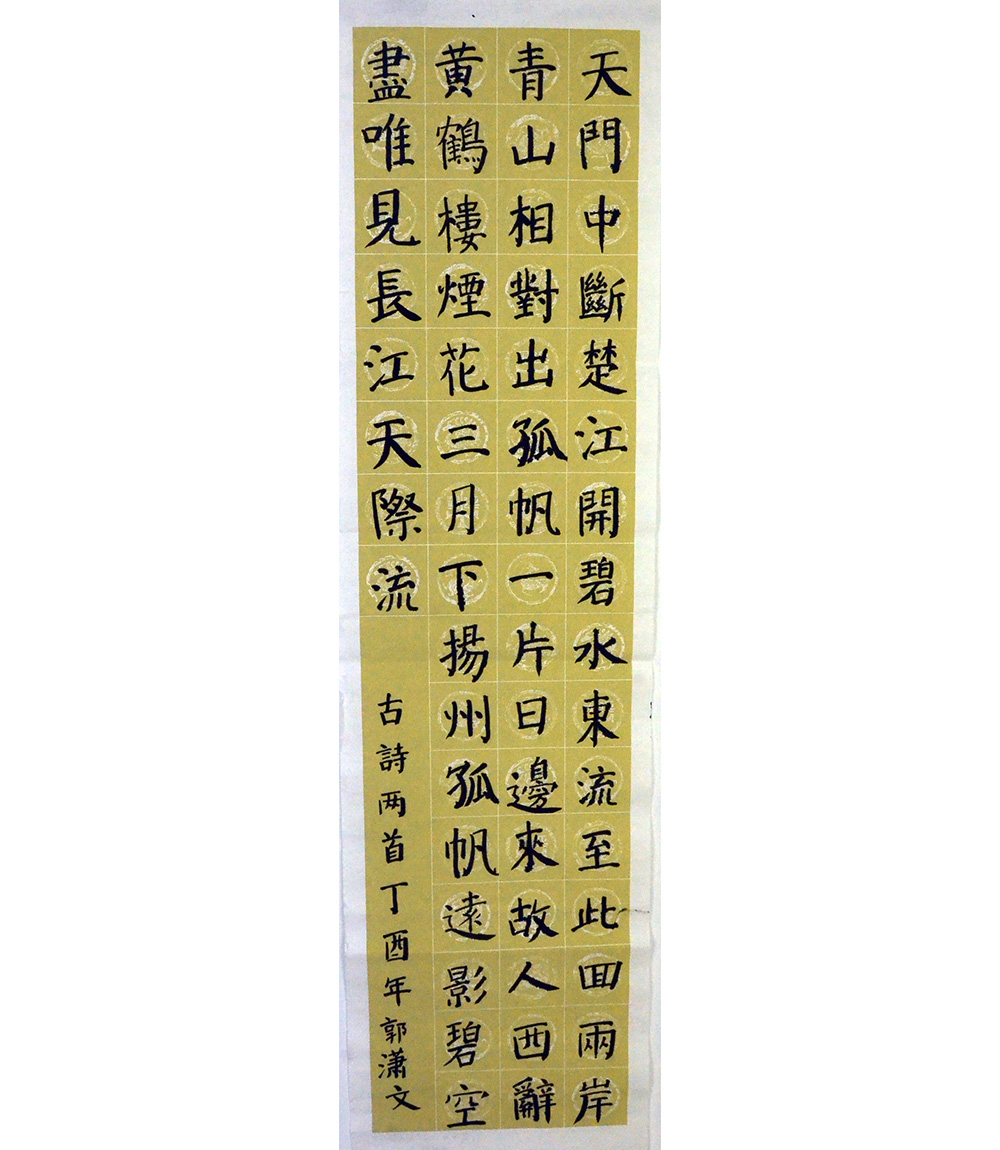 天門中斷楚江開碧水東流至此回兩岸
青山相對出孤帆一片日邊來故人西辭
黃鶴樓煙花三月下揚州孤帆遠影碧空
盡唯見長江天際流
古詩两首丁酉年郭潇文